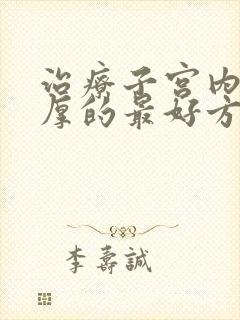 治療子宮內
厚的最好方
李壽誠